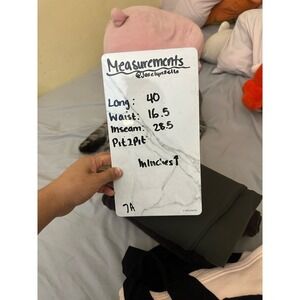 Measurements
@Jocelynzello
Long: 40
Waist: 16.5
Inseam: 28.5
Pit2Pit:
Minches↑
7A